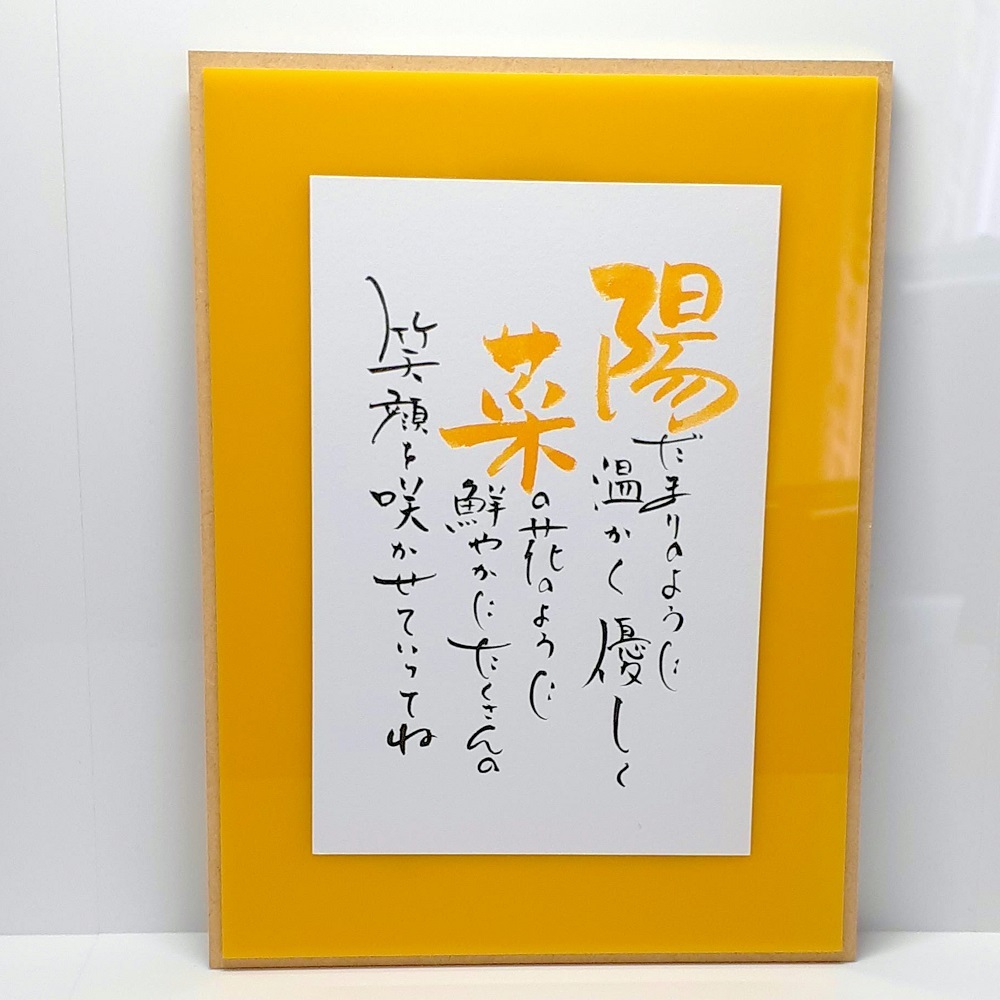 陽だまりのように
温かく優しく
菜の花のように
鮮やかにたくさんの
笑顔を咲かせていってね